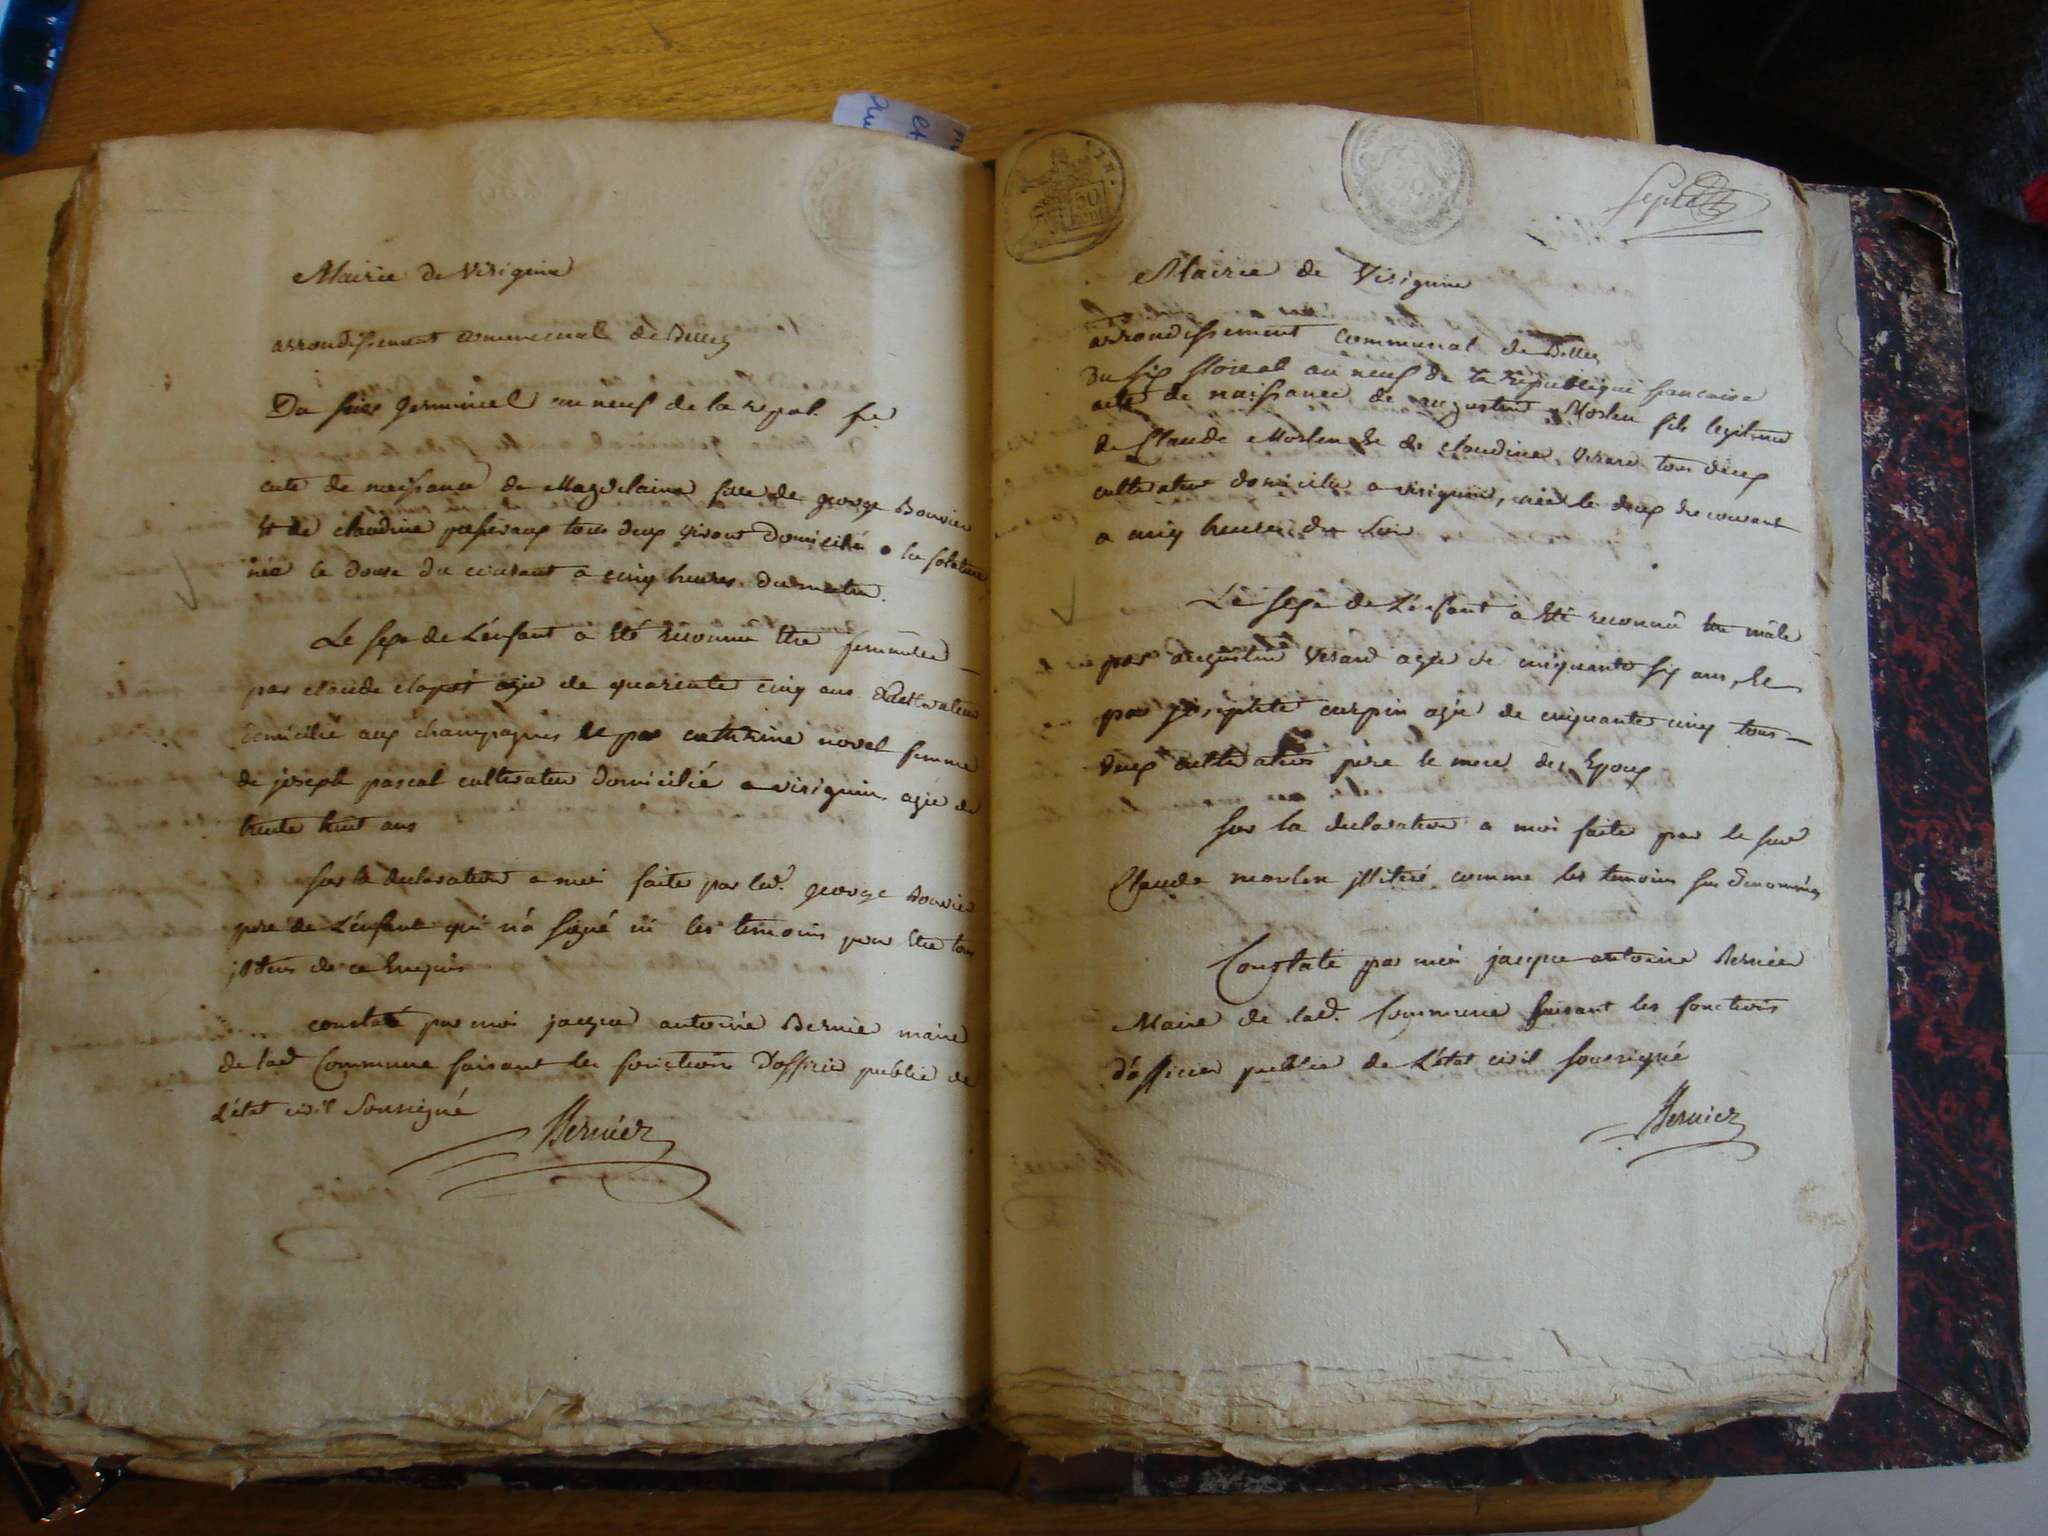 Mairie de Virignin
arrondissement communal de Belley
Du seize germinal an neuf de la repub. fse
acte de naissance de Magdelaine fille de george Bouvier
et de claudine tous deux vivant domicilié a la
née le douse du courant a cinq heures du matin.
Le sexe de L'enfant a été reconnu être feminin
par claude clapot agé de quarente cinq ans cultivateur
domicilié aux champagnes et par catherine novel femme
de joseph pascal cultivateur domicilié a virignin agée de
trente huit ans
sur la declaration a moi faite par led. george Bouvier
pere de L'enfant qui n'a signé ni les temoins pour être tous
de ce enquis
constaté par moi jacque antoine Bernier maire
de lad. Commune faisant les fonctions d'officier public de
L'état civil soussigné
Bernier
30
Mairie de Virignin
arrondissement communal de Belley
Du six floreal an neuf de la republique francaise
acte de naissance de augustin Morlen fils legitime
de Claude Morlen et de claudine Verard tous deux
cultivateur domicilié a virignin, née le deux du courant
a cinq heures du soir
Le sexe de L'enfant a été reconnû être mâle
par augustin Verard agée de cinquante six ans, et
par curpin agée de cinquante cinq tous
deux cultivateurs pere et mere des Epoux
sur la declaration a moi faite par le sieur
Claude morlen illiteré comme les temoins sus denommés
Constaté par moi jacque antoine Bernier
Maire de lad. Commune faisant les fonctions
d'officier public de L'état civil soussigné
Bernier